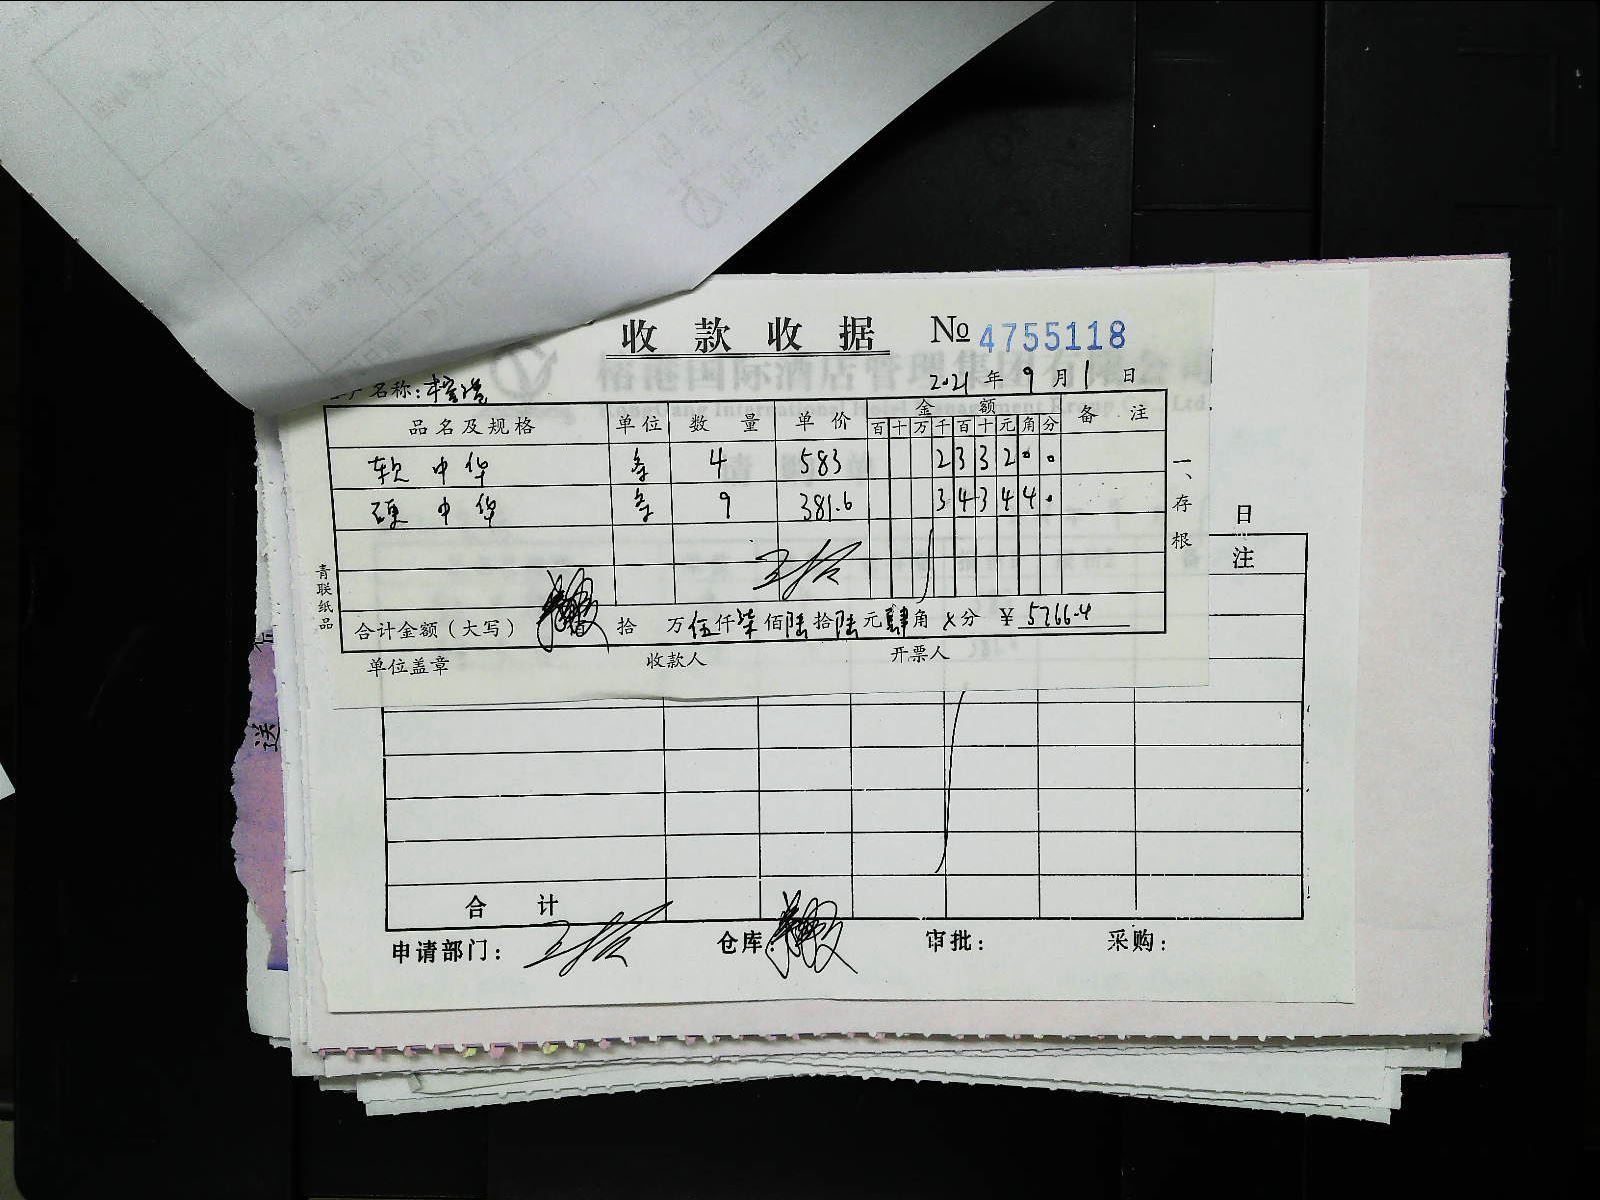 收款收据 № 4755118
户名称：
2021 年 9 月 1 日
品名及规格 单位 数量 单价 金额 备注
百 十 万 千 百 十 元 角 分
软中华 条 4 583 2 3 3 2 0 0
硬中华 条 9 381.6 3 4 3 4 4 0
合计金额（大写） 拾 万 伍 仟 柒 佰 陆 拾 陆 元 肆 角 x 分 ¥ 5766.4
单位盖章 收款人 开票人
一、存根
青联纸品
日
注
送
合计
申请部门： 仓库： 审批： 采购：